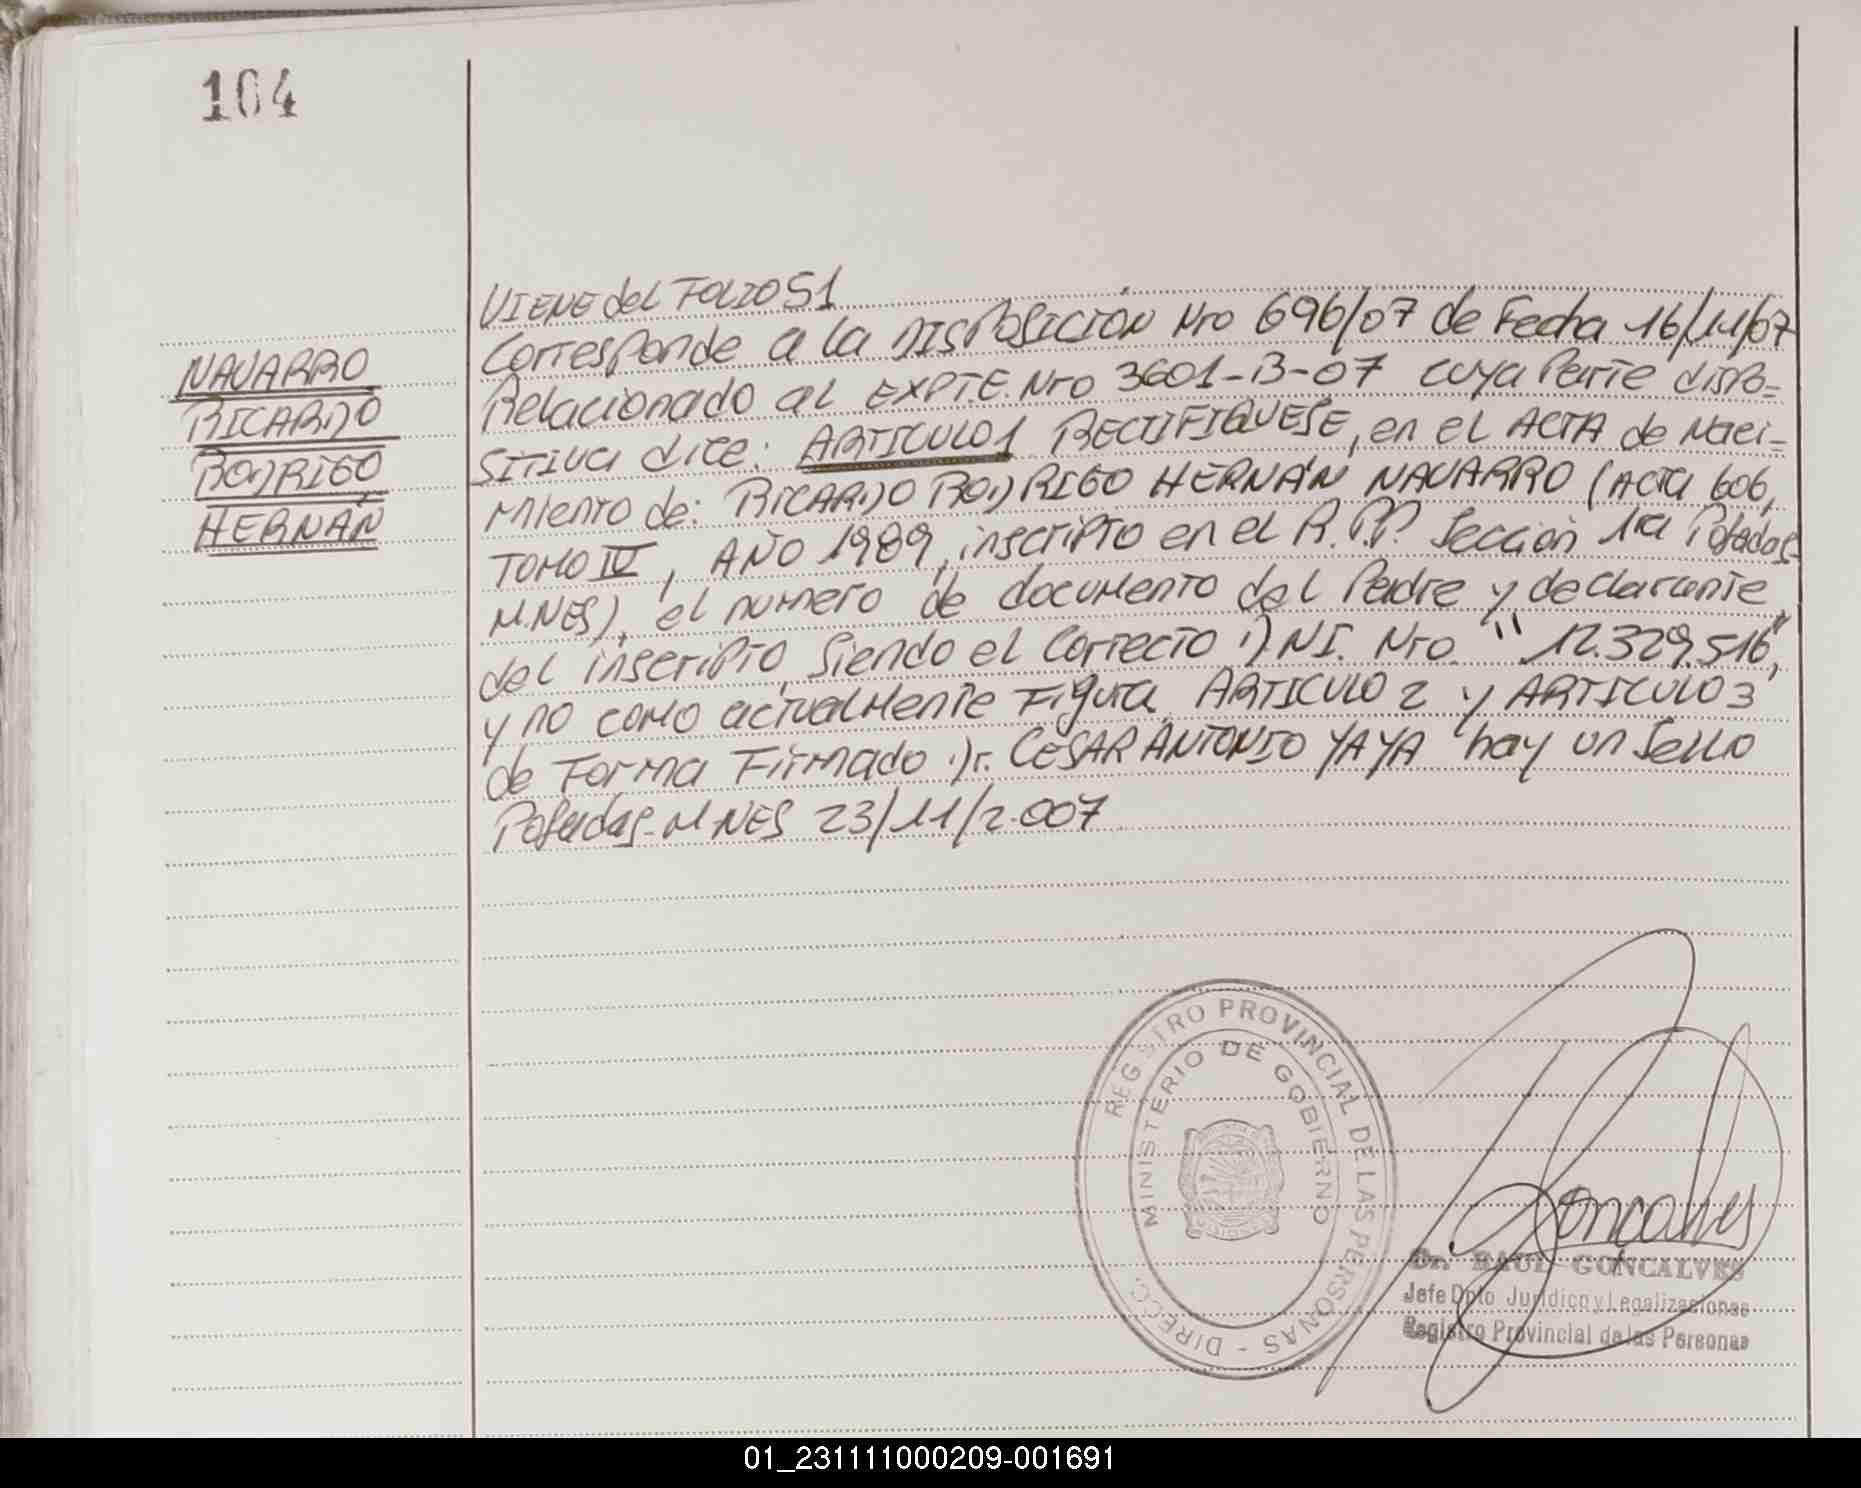 104
VIENE del FOLIO 51
Corresponde a la DISPOSICIÓN Nro 696/07 de Fecha 16/11/07
Relacionado al EXPTE. Nro 3601-B-07 cuya Parte dispo=
sitiva dice: ARTICULO 1 RECTIFIQUESE, en el ACTA de Naci=
miento de: RICARDO RODRIGO HERNÁN NAVARRO (Acta 606,
TOMO IV, AÑO 1989, inscripto en el R.P.P. Sección 1ra Posadas-
M.NES), el numero de documento del Padre y declarante
del inscripto, Siendo el Correcto D.NI. Nro. "12.329.516",
y no como actualmente Figura. ARTICULO 2 y ARTICULO 3
de Forma Firmado Dr. CESAR ANTONIO YAYA hay un Sello
Posadas-MNES 23/11/2.007
NAVARRO
RICARDO
RODRIGO
HERNÁN
REGISTRO PROVINCIAL DE LAS PERSONAS - DIRECC.
MINISTERIO DE GOBIERNO
Goncalves
Dr. RAUL GONCALVES
Jefe Dpto Jurídico y Legalizaciones
Registro Provincial de las Personas
01_231111000209-001691